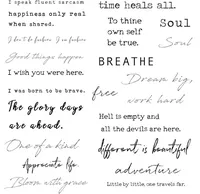 I speak fluent sarcasm
happiness only real
when shared.
Good things happen
I wish you were here.
I was born to be brave.
The glory days
are ahead.
One of a kind
Appreciate life.
Bloom with grace
time heals all.
To thine
own self
be true.
Soul
Soul
BREATHE
Dream big,
work hard
free
Hell is empty and
all the devils are here.
different is beautiful
adventure
Little by little, one travels far.